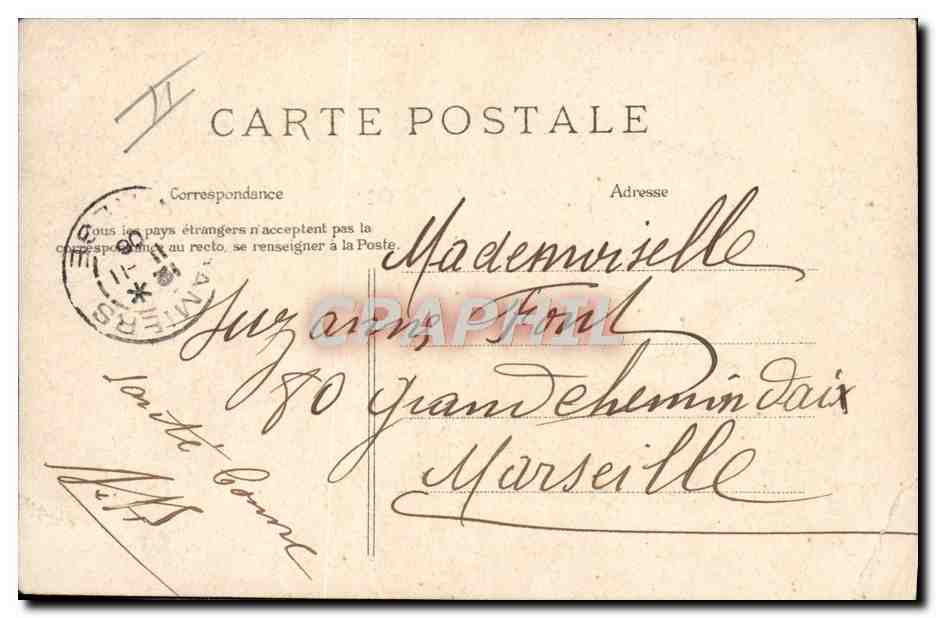 CARTE POSTALE
Correspondance
Adresse
Tous les pays étrangers n'acceptent pas la
correspondance au recto, se renseigner à la Poste.
Mademoiselle
Suzanne Font
80 grand chemin d'aix
Marseille
santé bonne
CPAPHIL